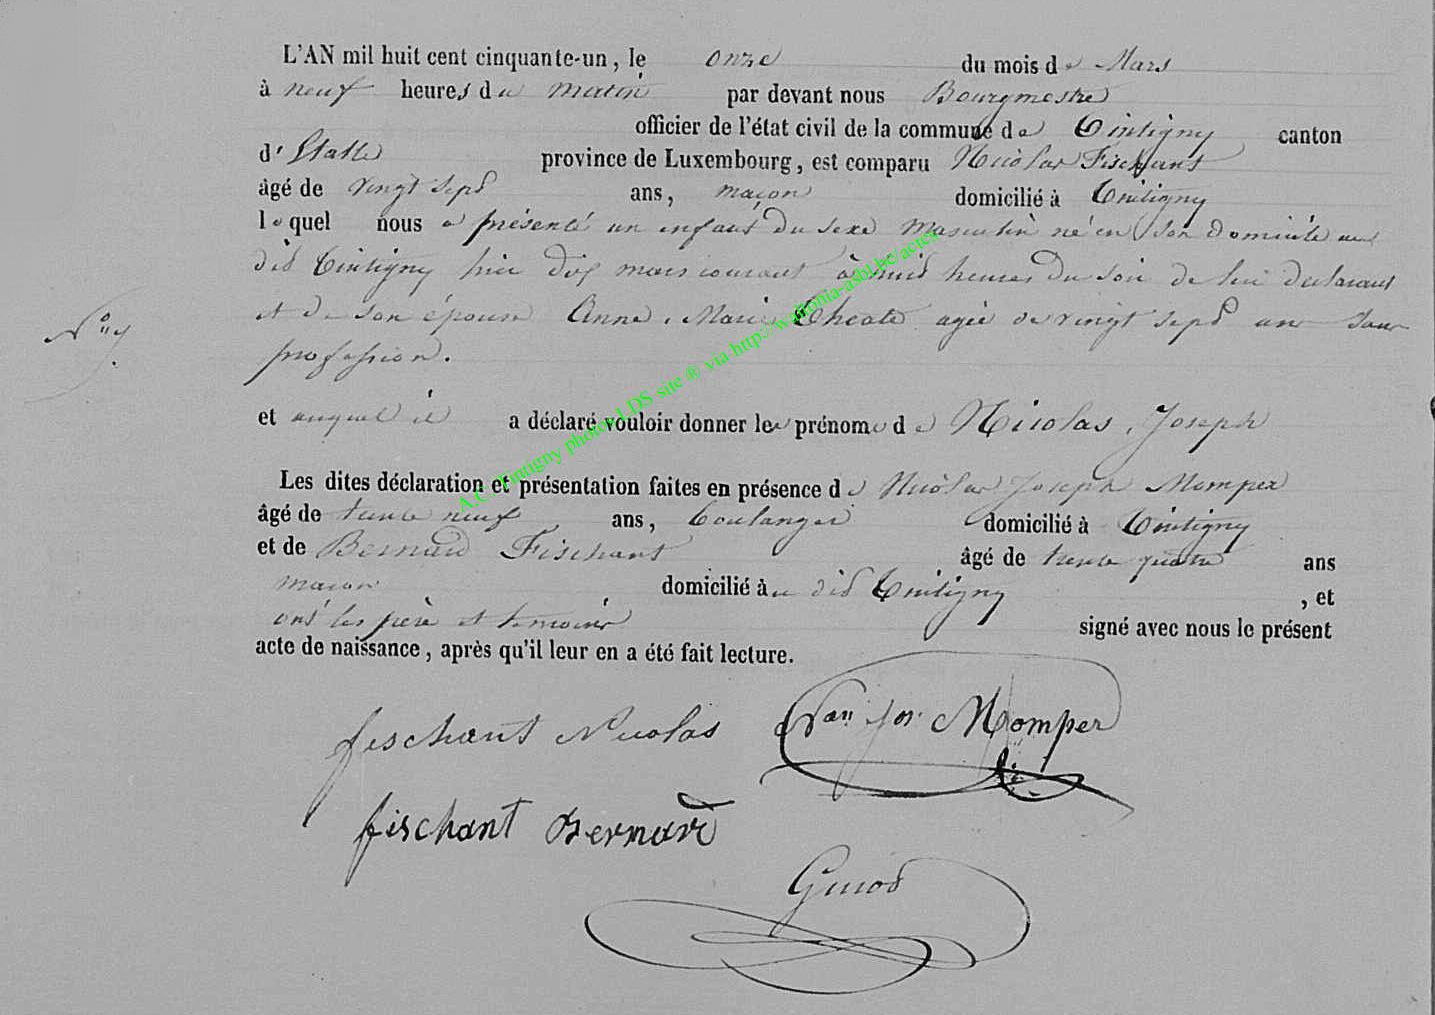 L'AN mil huit cent cinquante-un, le onze du mois de Mars
à neuf heures du matin par devant nous Bourgmestre
officier de l'état civil de la commune de Tintigny canton
d'Etalle province de Luxembourg, est comparu Nicolas Fischant
âgé de vingt sept ans, maçon domicilié à Tintigny
lequel nous a présenté un enfant du sexe masculin né en son domicile au
dit Tintigny hier dix mars courant à huit heures du soir de lui déclarant
et de son épouse Anne, Marie Theate agée de vingt sept ans sans
profession.
et auquel il a déclaré vouloir donner les prénoms de Nicolas, Joseph
Les dites déclaration et présentation faites en présence de Nicolas Joseph Momper
âgé de trente neuf ans, boulanger domicilié à Tintigny
et de Bernard Fischant âgé de trente quatre ans
maçon domicilié au dit Tintigny , et
ont les père et temoins signé avec nous le présent
acte de naissance, après qu'il leur en a été fait lecture.
fischant Nicolas Jos. Momper
fischant Bernard
A.C. Tintigny photos LDS site ® via http://wallonia-asbl.be/actes